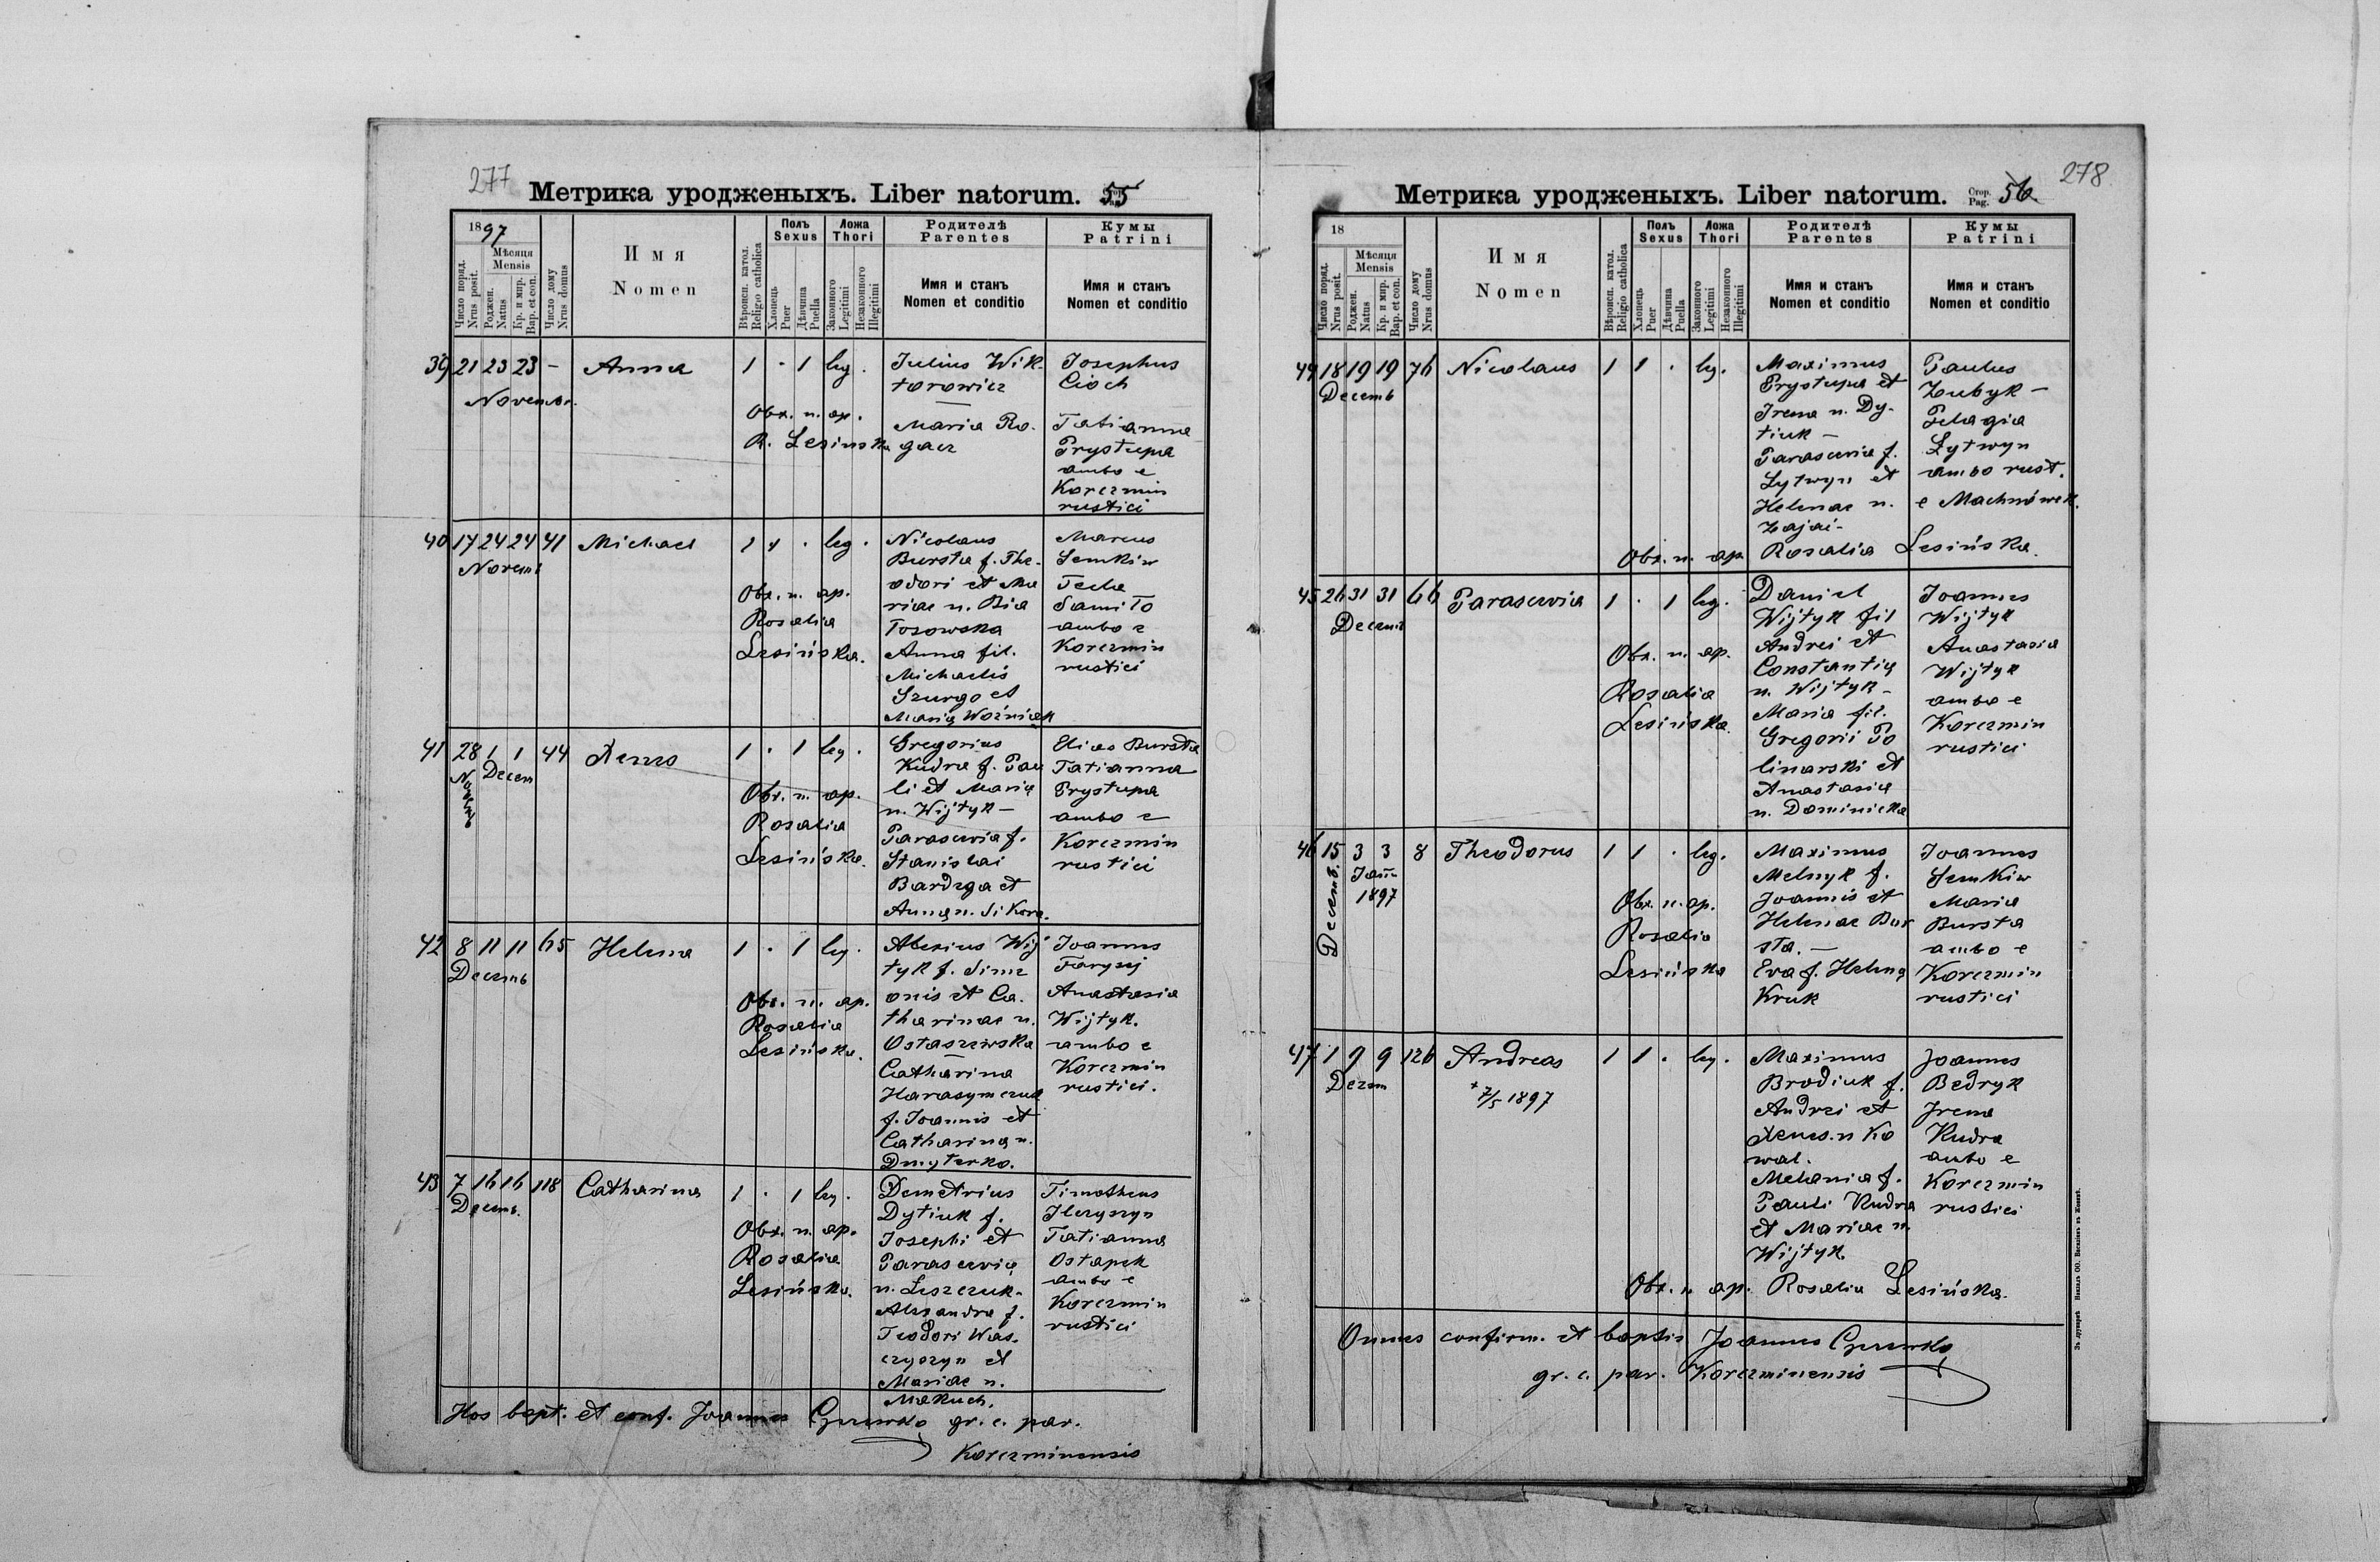 277
Метрика уродженыхъ. Liber natorum. 55
1897
Число поряд.
Nrus posit.
Мѣсяця
Mensis
Роджен.
Natus
Кр. и мир.
Bap. et con.
Число дому
Nrus domus
Имя
Nomen
Вѣроисп. катол.
Religio catholica
Полъ
Sexus
Хлопець
Puer
Дѣвчина
Puella
Ложа
Thori
Законного
Legitimi
Незаконного
Illegitimi
Родителѣ
Parentes
Имя и станъ
Nomen et conditio
Кумы
Patrini
Имя и станъ
Nomen et conditio
39 21 23 23 - Anna 1 · 1 leg.
Novembr.
Obx. n. ap.
R. Lesinska
Julius Wik-
torowicz
Maria Ro-
gacz
Josephus
Cioch
Tatianna
Prystupa
ambo e
Korczmin
rustici
40 17 24 24 41 Michael 1 1 · leg.
Novemb
Obx. n. ap.
Rosalia
Lesińska.
Nicolaus
Bursta f. The-
odori et Ma
riae n. Bia
Tosowska
Anna fil.
Michaelis
Szurgo et
Marię Woźniak
Marcus
Semkiw
Tecla
Sami To
ambo e
Korczmin
rustici
41 28 1 1 44 Xenso 1 · 1 leg.
Novemb Decem
Obx. n. ap.
Rosalia
Lesińska.
Gregorius
Kudra f. Pau
li et Marię
n. Wijtyk —
Parascevia f.
Stanislai
Bardzga et
Annę n. Sikora.
Elias Bursta
Tatianna
Prystupa
ambo e
Korczmin
rustici
42 8 11 11 65 Helena 1 · 1 leg.
Decemb
Obx. n. ap.
Rosalia
Lesińska.
Alexius Wij
tyk f. Sime
onis et Ca-
tharinae n.
Ostaszewska
Catharina
Harasymczuk
f. Joannis et
Catharinę n.
Dmyterko.
Joannes
Farysej
Anastasia
Wijtyk.
ambo e
Korczmin
rustici.
43 7 16 16 118 Catharina 1 · 1 leg.
Decemb.
Obx. n. ap.
Rosalia
Lesińska.
Demetrius
Dytiuk f.
Josephi et
Parascevię
n. Leszczuk-
Alexandra f.
Teodori Was-
czyszyn et
Mariae n.
Makuch.
Timotheus
Ilczyszyn
Tatianna
Ostapek
ambo e
Korczmin
rustici
Hos bapt. et conf. Joannes gr. c. par.
Korczminensis
278
Метрика уродженыхъ. Liber natorum. Стор. Pag. 56
18
Число поряд.
Nrus posit.
Мѣсяця
Mensis
Роджен.
Natus
Кр. и мир.
Bap. et con.
Число дому
Nrus domus
Имя
Nomen
Вѣроисп. катол.
Religio catholica
Полъ
Sexus
Хлопець
Puer
Дѣвчина
Puella
Ложа
Thori
Законного
Legitimi
Незаконного
Illegitimi
Родителѣ
Parentes
Имя и станъ
Nomen et conditio
Кумы
Patrini
Имя и станъ
Nomen et conditio
44 18 19 19 76 Nicolaus 1 1 · leg.
Decemb
Maximus
Prystupa et
Irena n. Dy-
tiuk —
Parascevia f.
Lytwyn et
Helenae n.
Zajać-
Paulus
Zubyk —
Pelagia
Lytwyn
ambo rust.
e Machnówek.
Obx. n. ap Rosalia Lesińska.
45 26 31 31 66 Parascevia 1 · 1 leg.
Decemb
Obx. n. ap.
Rosalia
Lesińska.
Daniel
Wijtyk fil
Andrei et
Constantię
n. Wijtyk -
Maria fil.
Gregorii Po
linarski et
Anastasię
n. Dominicka
Joannes
Wijtyk
Anastasia
Wijtyk
ambo e
Korczmin
rustici
46 15 3 3 8 Theodorus 1 1 · leg.
Decemb. Jann
1897
Obx. n. ap.
Rosalia
Lesińska
Maximus
Melnyk f.
Joannis et
Helenae Bur
sta. —
Eva f. Helenę
Kruk
Joannes
Semkiw
Maria
Bursta
ambo e
Korczmin
rustici
47 1 9 9 126 Andreas 1 1 · leg.
Decem
+ 7/5 1897
Maximus
Brodiuk f.
Andrei et
Xenes. n Ko
wal.
Melania f.
Pauli Kudra
et Mariae n
Wijtyk.
Joannes
Bedryk
Irena
Kudra
ambo e
Korczmin
rustici
Obx. n. ap. Rosalia Lesińska.
Omnes confirm. et baptis Joannes
gr. c. par. Korczminensis